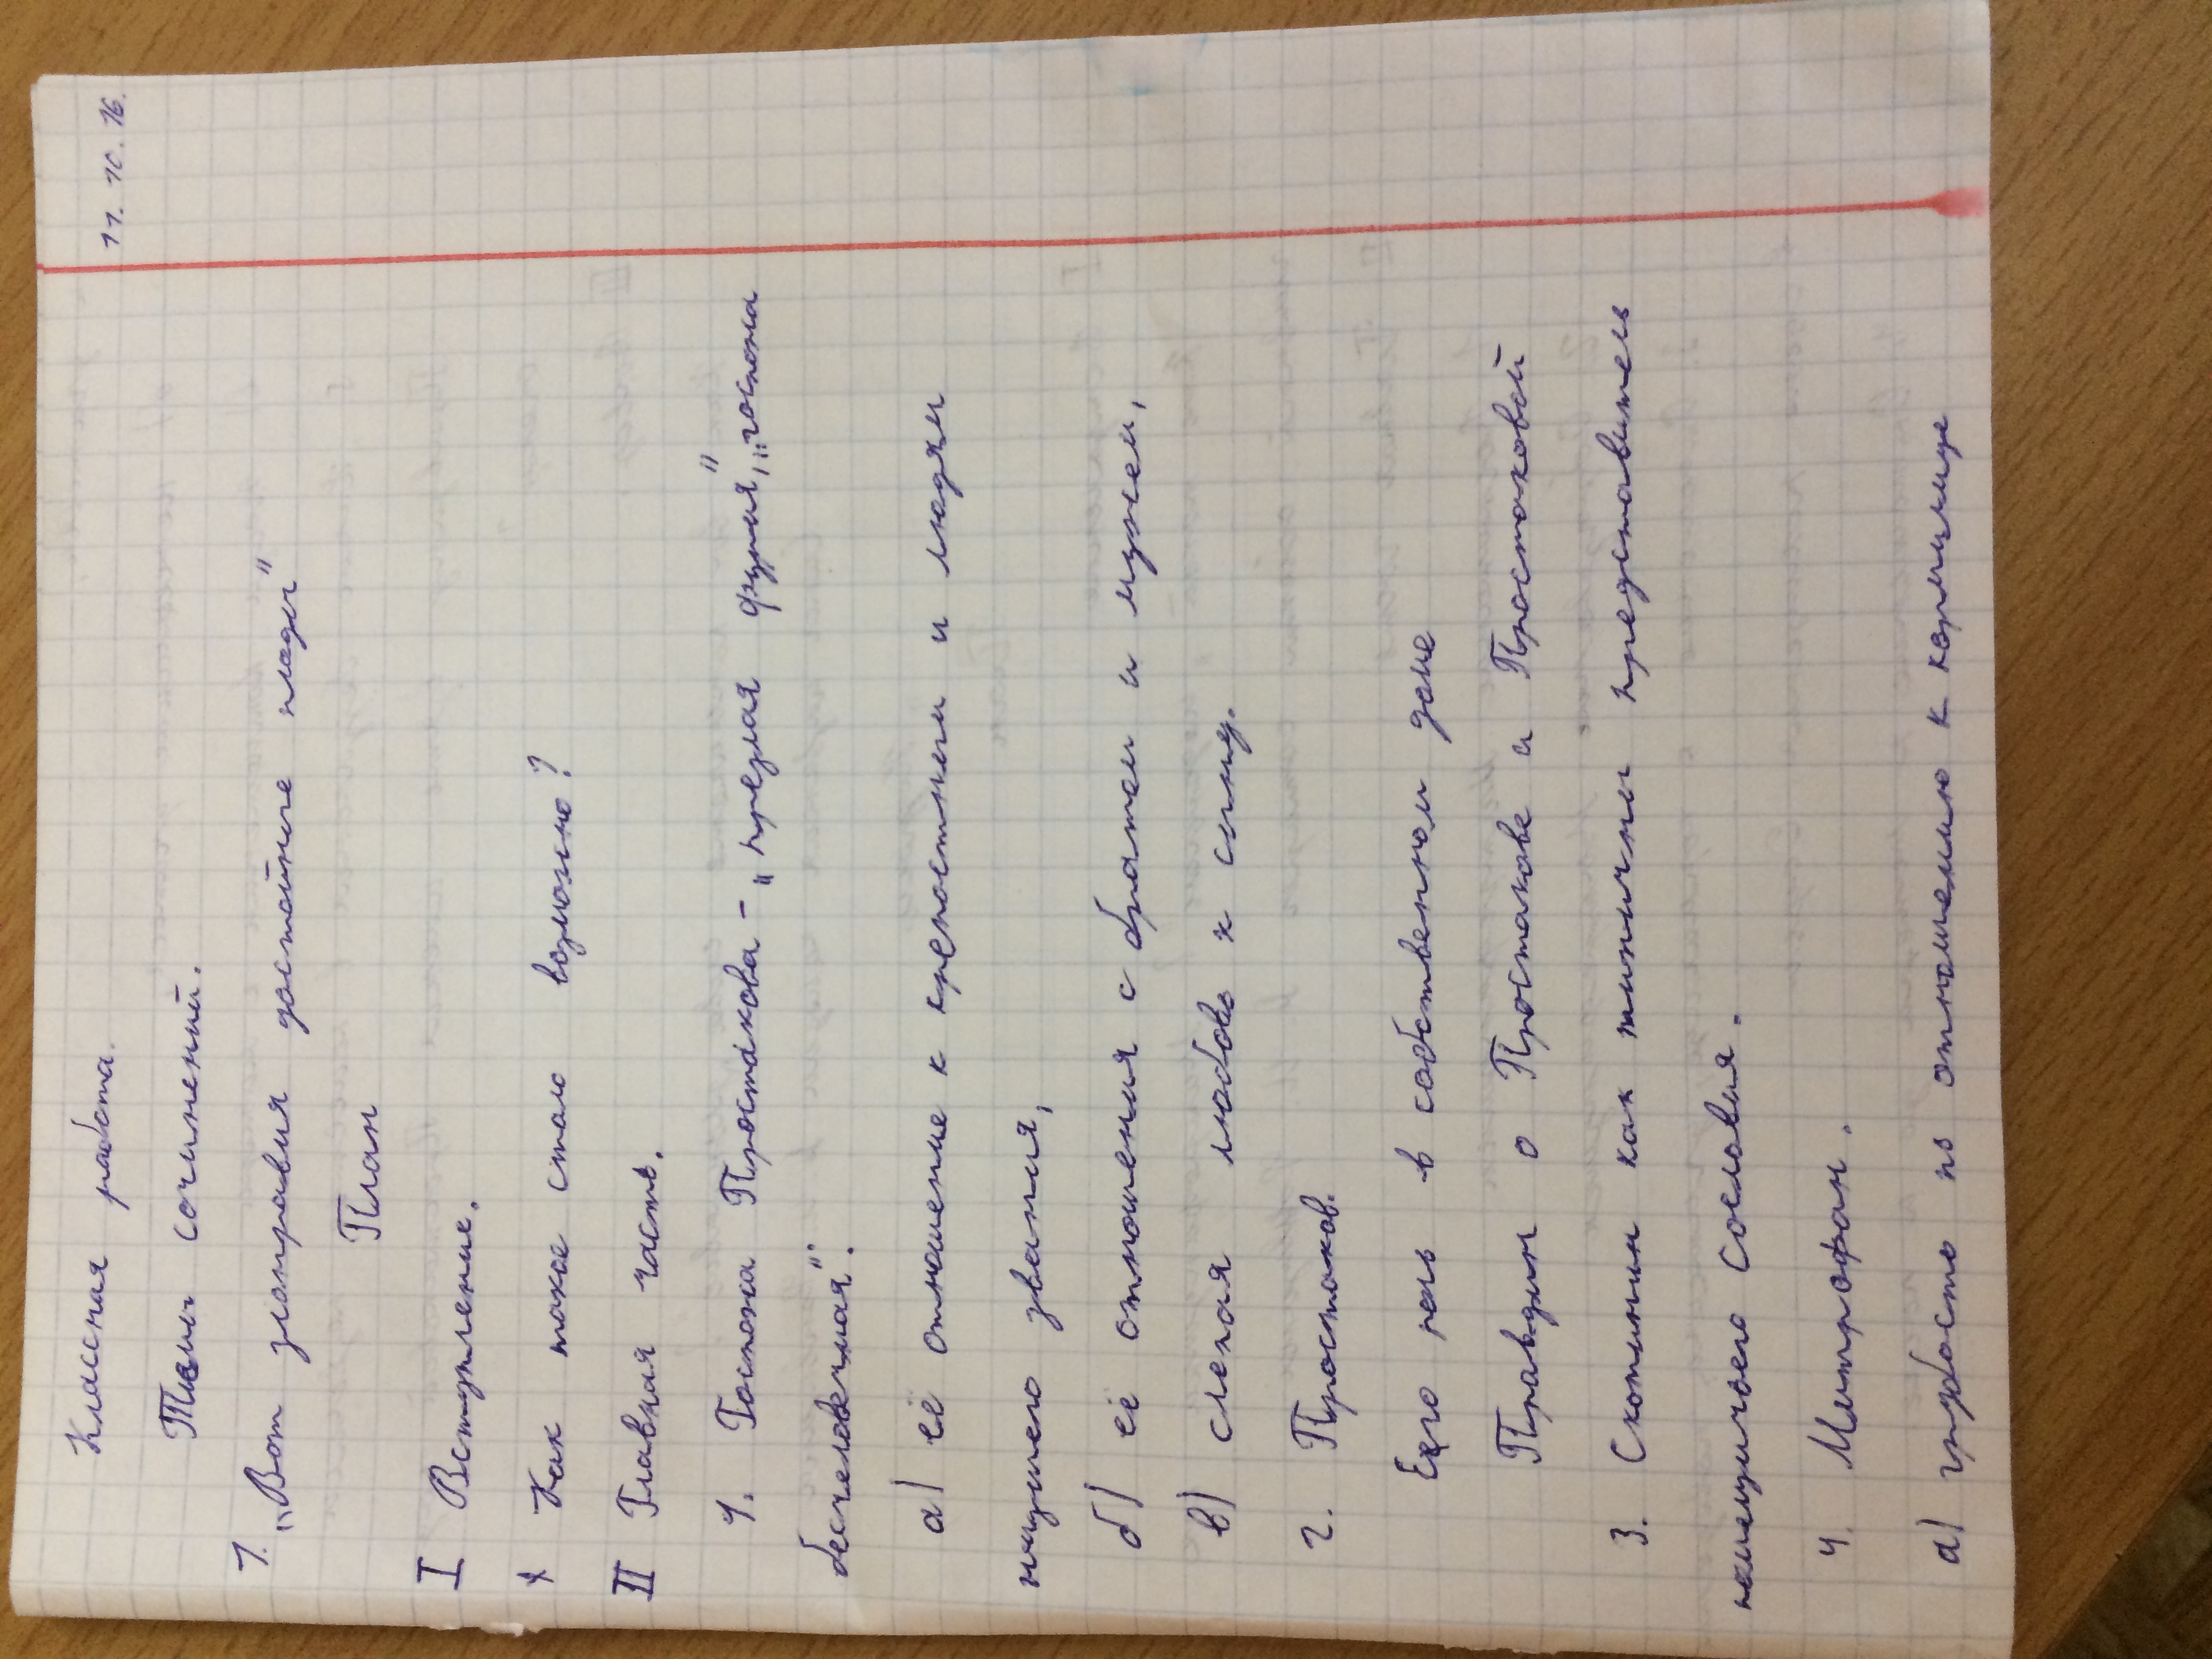 11. 10. 16.
Классная работа.
Темы сочинений.
1. „Вот злонравия достойные плоды"
План
I Вступление.
Как такое стало возможно?
II Главная часть.
1. Госпожа Простакова - „презлая фурия", „госпожа
бесчеловечная".
а) её отношение к крепостным и людям
низшего звания,
б) её отношения с братом и мужем,
в) слепая любовь к сыну.
2. Простаков.
Его роль в собственном доме
Правдин о Простакове и Простаковой
3. Скотинин как типичный представитель
помещичьего сословия.
4. Митрофан.
а) грубость по отношению к кормилице